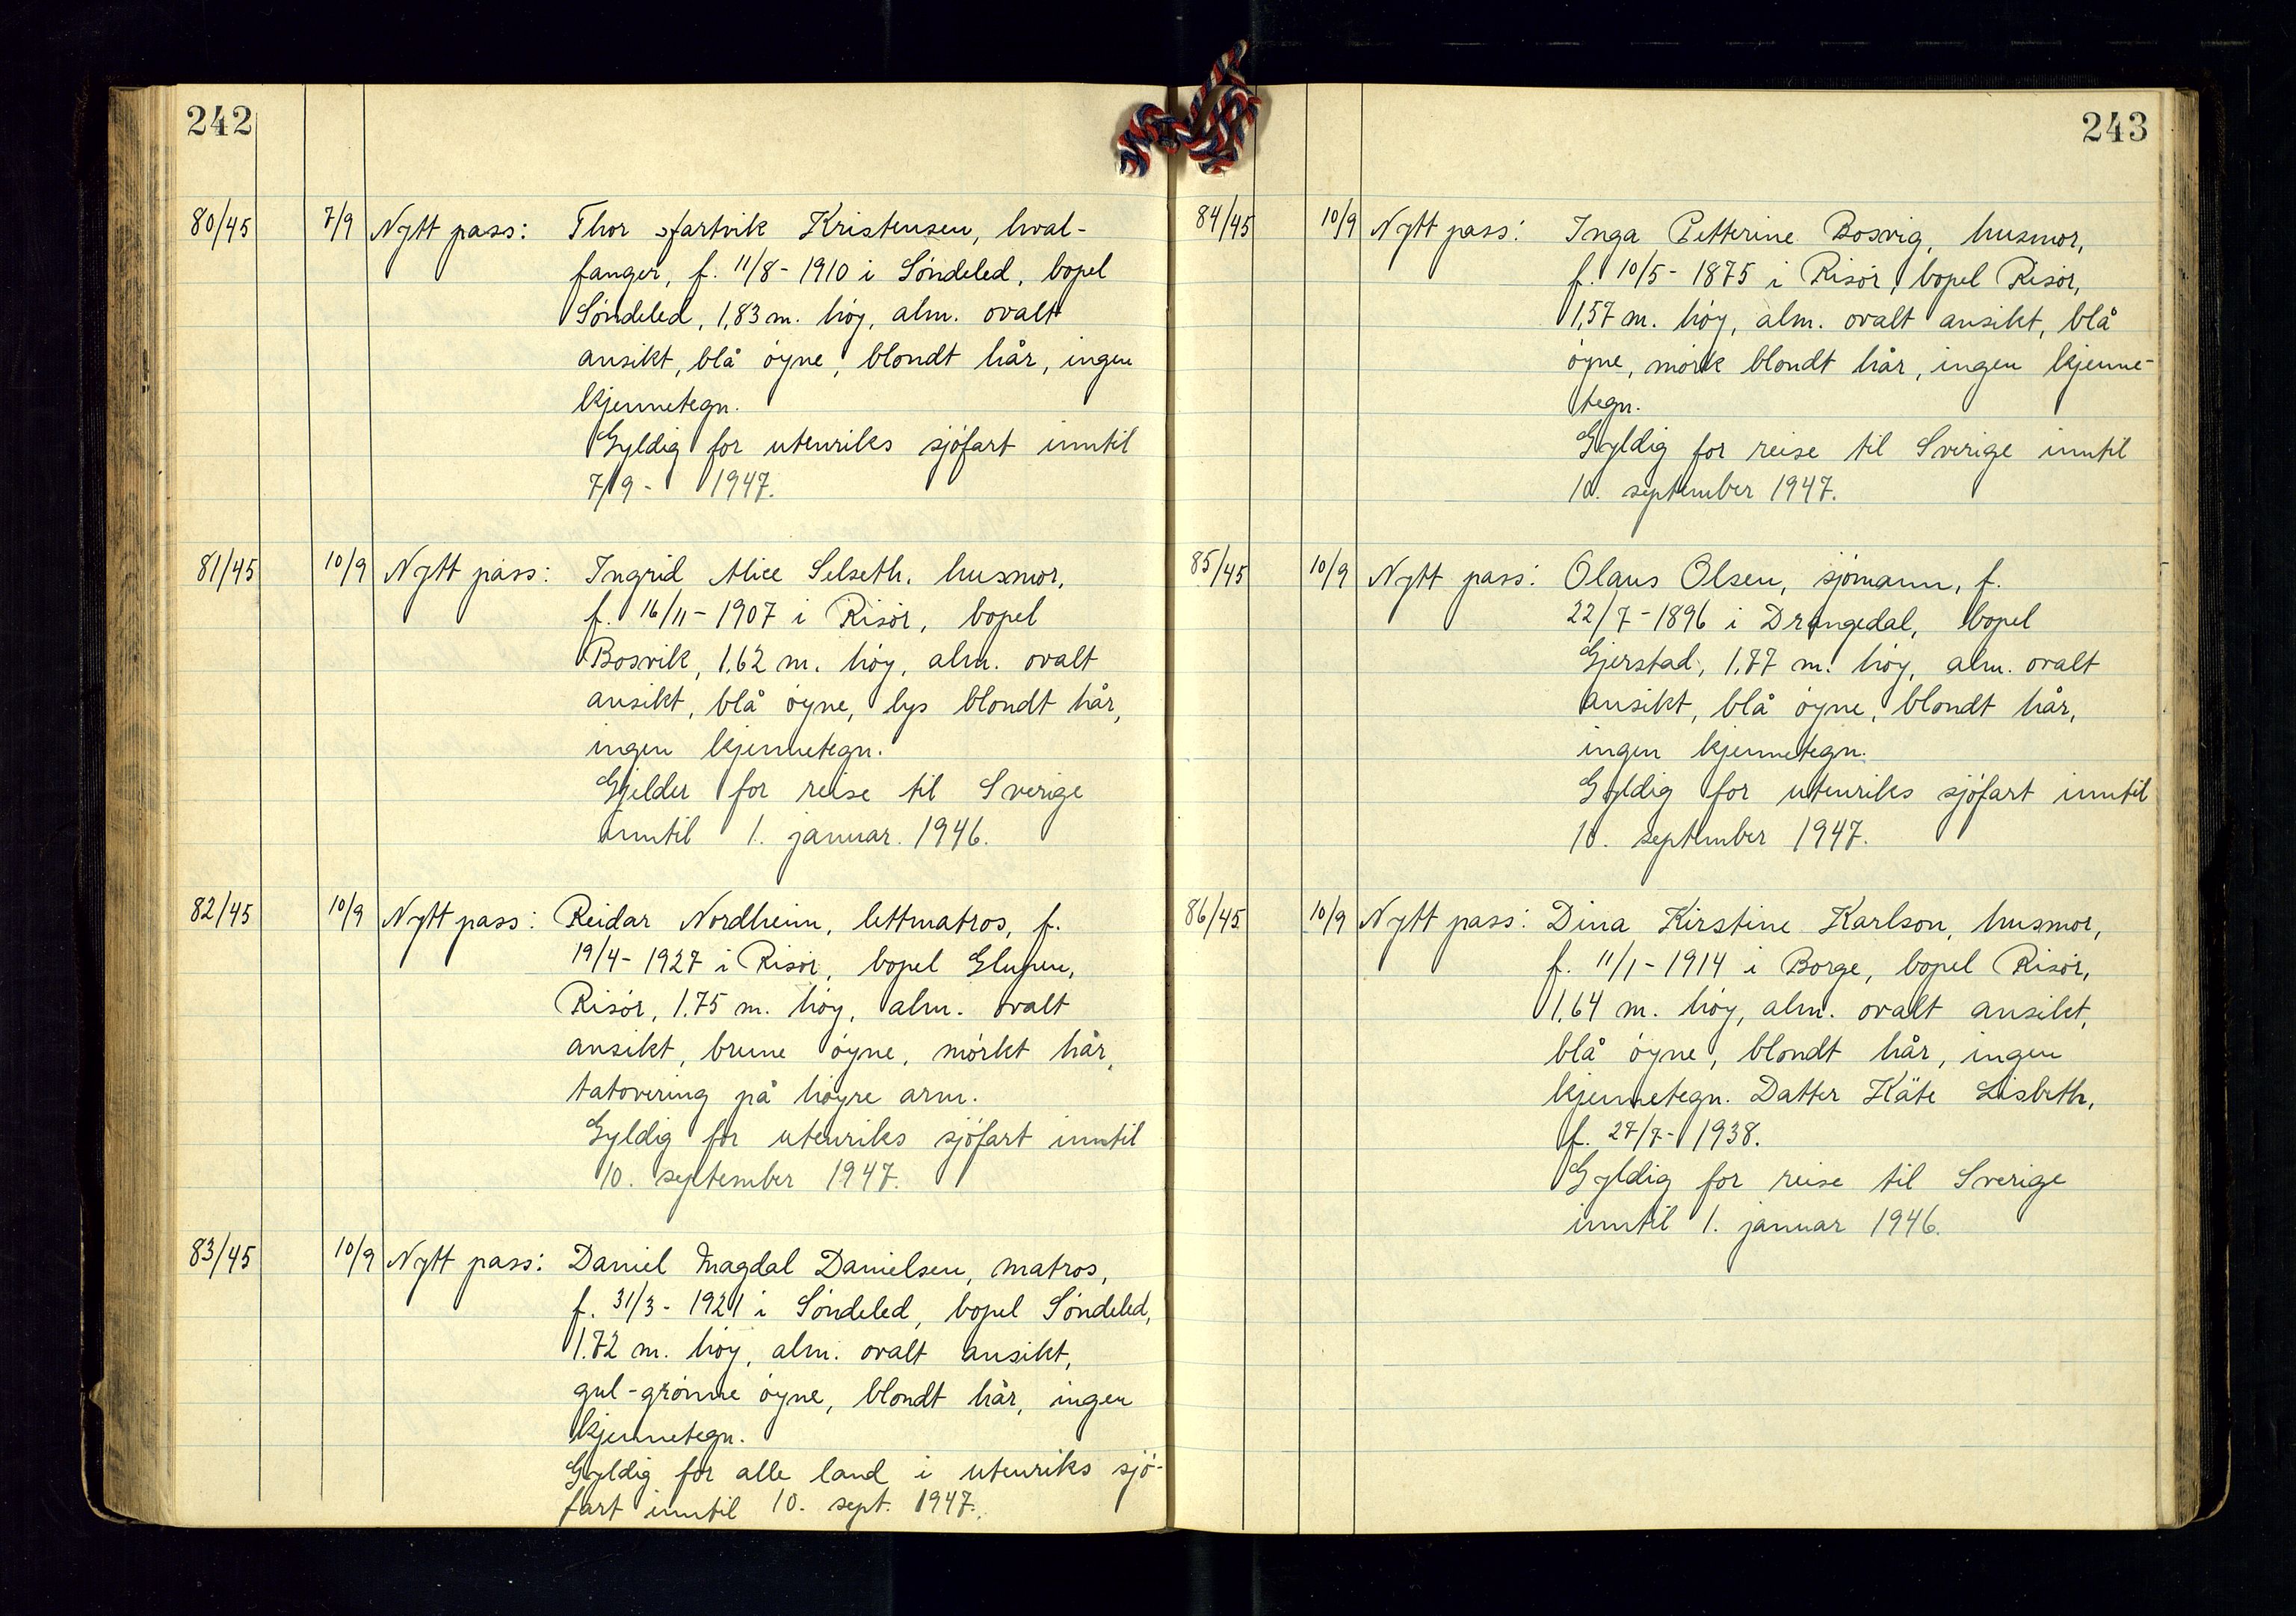 242
80/45 7/9 Nytt pass: Thor Hartvik Kristensen, hval-
fanger, f. 11/8-1910 i Söndeled, bopel
Söndeled, 1,83 m. höy, alm. ovalt
ansikt, blå öyne, blondt hår, ingen
kjennetegn.
Gyldig for utenriks sjöfart inntil
7/9 - 1947.
81/45 10/9 Nytt pass: Ingrid Alice Selseth, husmor,
f. 16/11-1907 i Risör, bopel
Bosvik, 1.62 m. höy, alm. ovalt
ansikt, blå öyne, lys blondt hår,
ingen kjennetegn.
Gjelder for reise til Sverige
inntil 1. januar. 1946.
82/45 10/9 Nytt pass: Reidar Nordheim, lettmatros, f.
19/4-1927 i Risör, bopel Glupen,
Risör, 1.75 m. höy, alm. ovalt
ansikt, brune öyne, mörkt hår,
tatovering på höyre arm.
Gyldig for utenriks sjöfart inntil
10. september 1947.
83/45 10/9 Nytt pass: Daniel Magdal Danielsen, matros,
f. 31/3-1921 i Söndeled, bopel Söndeled,
1.72 m. höy, alm. ovalt ansikt,
gul-grönne öyne, blondt hår, ingen
kjennetegn.
Gyldig for alle land i utenriks sjö-
fart inntil 10. sept. 1947.
243
84/45 10/9 Nytt pass: Inga Petterine Bosvig, husmor,
f. 10/5-1875 i Risör, bopel Risör,
1,57 m. höy, alm. ovalt ansikt, blå
öyne, mörk blondt hår, ingen kjenne-
tegn.
Gyldig for reise til Sverige inntil
10. september 1947.
85/45 10/9 Nytt pass: Olaus Olsen, sjömann, f.
22/7-1896 i Drangedal, bopel
Gjerstad, 1.77 m. höy, alm. ovalt
ansikt, blå öyne, blondt hår,
ingen kjennetegn.
Gyldig for utenriks sjöfart inntil
10. september 1947.
86/45 10/9 Nytt pass: Dina Kirstine Karlson, husmor,
f. 11/1-1914 i Borge, bopel Risör,
1,64 m. höy, alm. ovalt ansikt,
blå öyne, blondt hår, ingen
kjennetegn. Datter Käte Lisbeth,
f. 27/7-1938.
Gyldig for reise til Sverige
inntil 1. januar 1946.